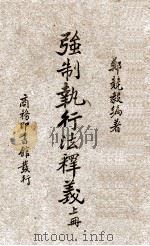 鄭競毅編著
強制執行法釋義上冊
商務印書館發行